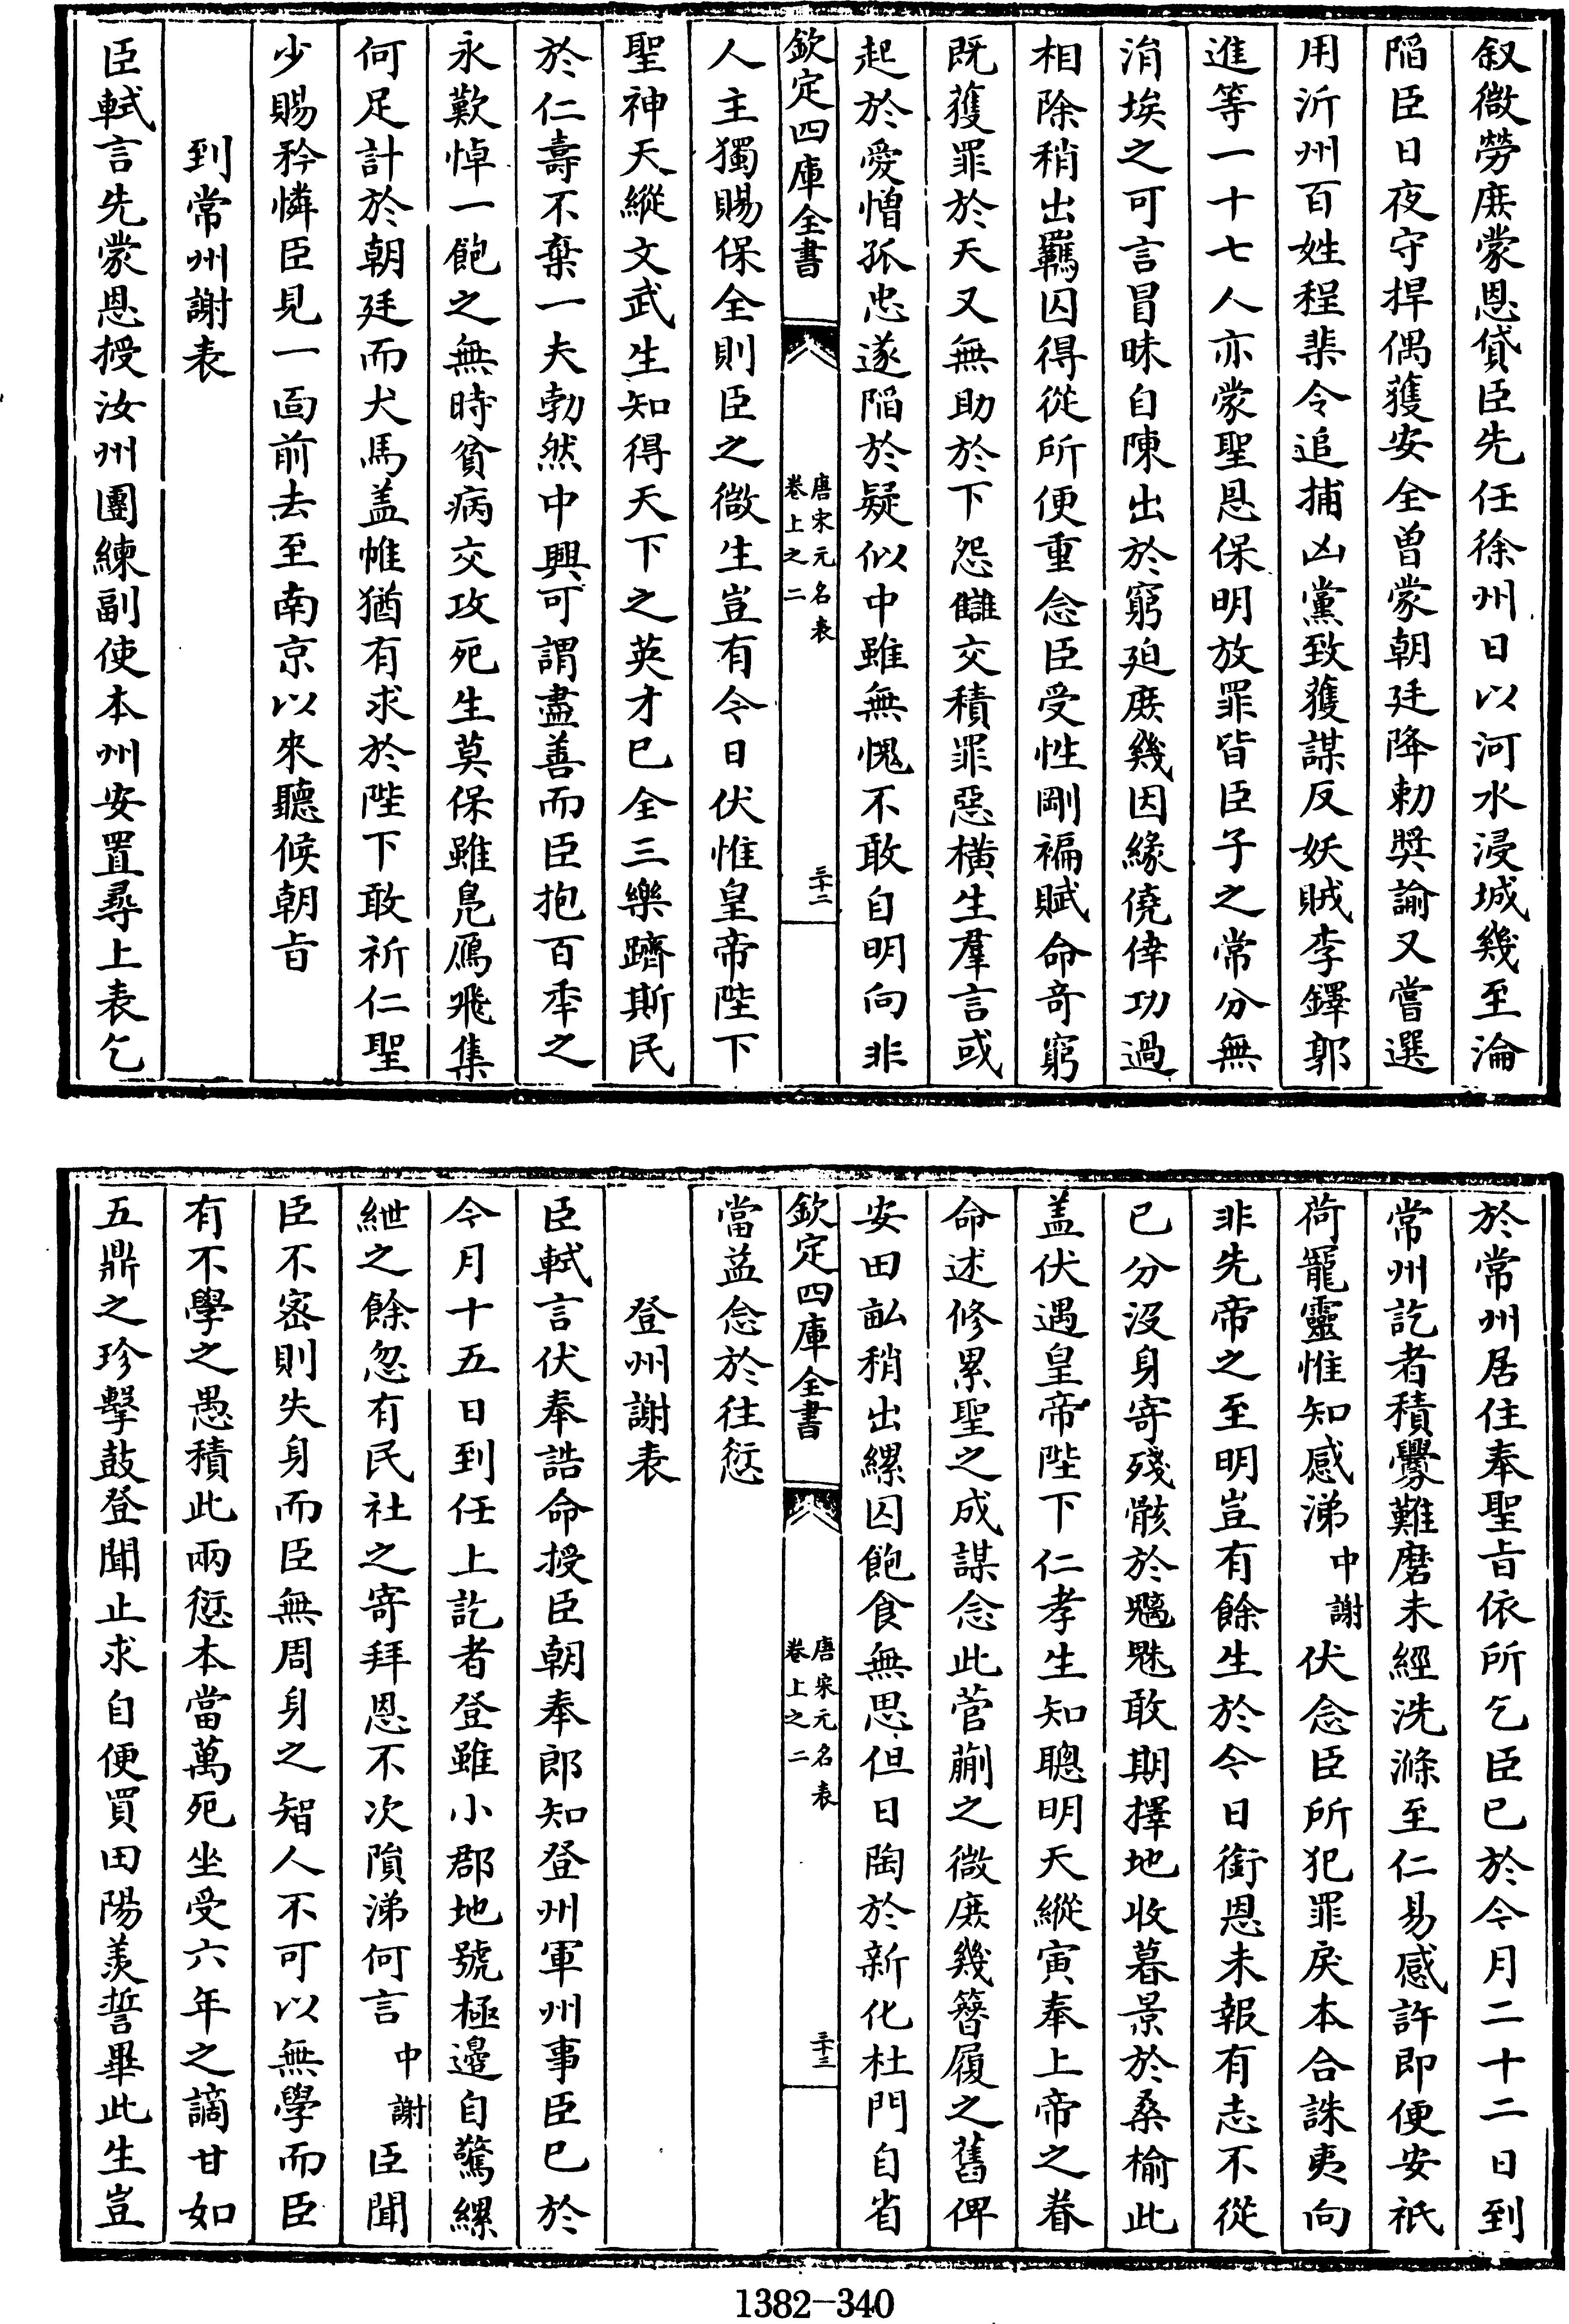 叙微勞庶蒙恩貸臣先任徐州日以河水浸城幾至淪
陷臣日夜守捍偶獲安全曾蒙朝廷降勅奬諭又嘗選
用沂州百姓程棐令追捕凶黨致獲謀反妖賊李鐸郭
進等一十七人亦蒙聖恩保明放罪皆臣子之常分無
涓埃之可言冒昧自陳出於窮廹庶幾因緣僥倖功過
相除稍出羈囚得從所便重念臣受性剛褊賦命奇窮
既獲罪於天又無助於下怨讎交積罪惡横生羣言或
起於愛憎孤忠遂陷於疑似中雖無愧不敢自明向非
欽定四庫全書
唐宋元名表
卷上之二
三十二
人主獨賜保全則臣之微生豈有今日伏惟皇帝陛下
聖神天縱文武生知得天下之英才已全三樂躋斯民
於仁壽不棄一夫勃然中興可謂盡善而臣抱百年之
永歎悼一飽之無時貧病交攻死生莫保雖鳬鴈飛集
何足計於朝廷而犬馬盖帷猶有求於陛下敢祈仁聖
少賜矜憐臣見一面前去至南京以來聽候朝㫖
到常州謝表
臣軾言先蒙恩授汝州團練副使本州安置尋上表乞
於常州居住奉聖㫖依所乞臣已於今月二十二日到
常州訖者積釁難磨未經洗滌至仁易感許即便安祇
荷寵靈惟知感涕中謝伏念臣所犯罪戾本合誅夷向
非先帝之至明豈有餘生於今日銜恩未報有志不從
已分沒身寄殘骸於魑魅敢期擇地收暮景於桑榆此
盖伏遇皇帝陛下仁孝生知聰明天縱寅奉上帝之眷
命述修累聖之成謀念此菅蒯之微庶幾簪履之舊俾
安田畆稍出縲囚飽食無思但日陶於新化杜門自省
欽定四庫全書
唐宋元名表
卷上之二
三十三
當益念於往愆
登州謝表
臣軾言伏奉誥命授臣朝奉郎知登州軍州事臣已於
今月十五日到任上訖者登雖小郡地號極邊自驚縲
紲之餘忽有民社之寄拜恩不次隕涕何言中謝臣聞
臣不宻則失身而臣無周身之智人不可以無學而臣
有不學之愚積此兩愆本當萬死坐受六年之謫甘如
五鼎之珍擊鼓登聞止求自便買田陽羡誓畢此生豈
1382-340